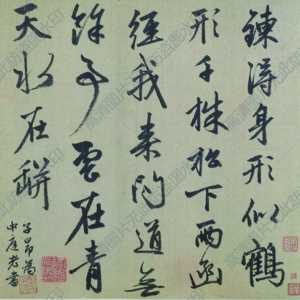 鍊得身形似鶴
形千株松下兩函
經我来問道無
餘事雲在青
天水在缾
子昂為
中庭老書